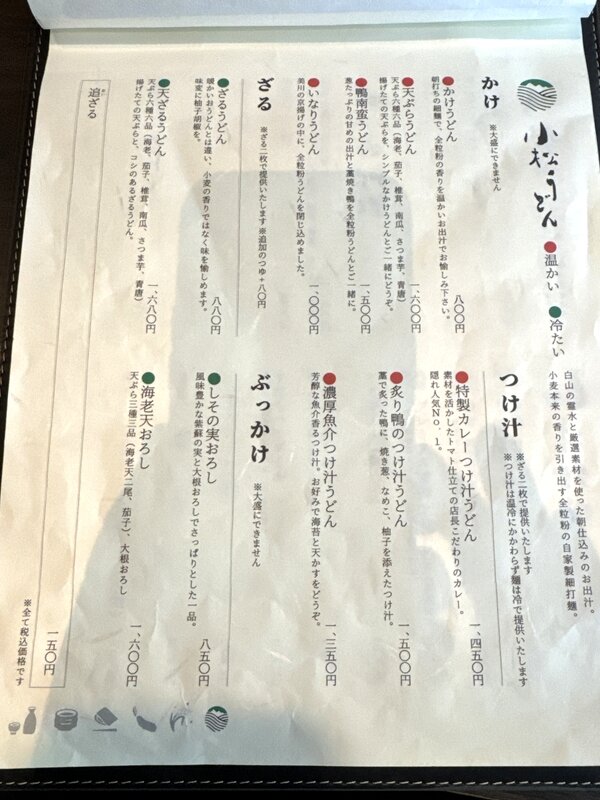 小松うどん
●温かい ●冷たい
白山の霊水と厳選素材を使った朝仕込みのお出汁。
小麦本来の香りを引き出す全粒粉の自家製細打麺。
かけ ※大盛にできません
●かけうどん
朝打ちの細麺で、全粒粉の香りを温かいお出汁でお愉しみ下さい。
八〇〇円
●天ぷらうどん
天ぷら六種六品（海老、茄子、椎茸、南瓜、さつま芋、青唐）
揚げたての天ぷらを、シンプルなかけうどんとご一緒にどうぞ。
一、六〇〇円
●鴨南蛮うどん
葱たっぷりの甘めの出汁と藁焼き鴨を全粒粉うどんとご一緒に。
一、五〇〇円
●いなりうどん
美川の京揚げの中に、全粒粉うどんを閉じ込めました。
一、〇〇〇円
ざる ※ざる二枚で提供いたします ※追加のつゆ＋八〇円
●ざるうどん
暖かいおうどんとは違い、小麦の香りではなく味を愉しめます。
味変に柚子胡椒を。
八八〇円
●天ざるうどん
天ぷら六種六品（海老、茄子、椎茸、南瓜、さつま芋、青唐）
揚げたての天ぷらと、コシのあるざるうどん。
一、六八〇円
つけ汁
※ざる二枚で提供いたします
※つけ汁は温冷にかかわらず麺は冷で提供いたします
●特製カレーつけ汁うどん
素材を活かしたトマト仕立ての店長こだわりのカレー。
隠れ人気No.1。
一、四五〇円
●炙り鴨のつけ汁うどん
藁で炙った鴨に、焼き葱、なめこ、柚子を添えたつけ汁。
一、五〇〇円
●濃厚魚介つけ汁うどん
芳醇な魚介香るつけ汁。お好みで海苔と天かすをどうぞ。
一、三五〇円
ぶっかけ ※大盛にできません
●しその実おろし
風味豊かな紫蘇の実と大根おろしでさっぱりとした一品。
八五〇円
●海老天おろし
天ぷら三種三品（海老天二尾、茄子）、大根おろし
一、六〇〇円
追ざる 一五〇円
※全て税込価格です